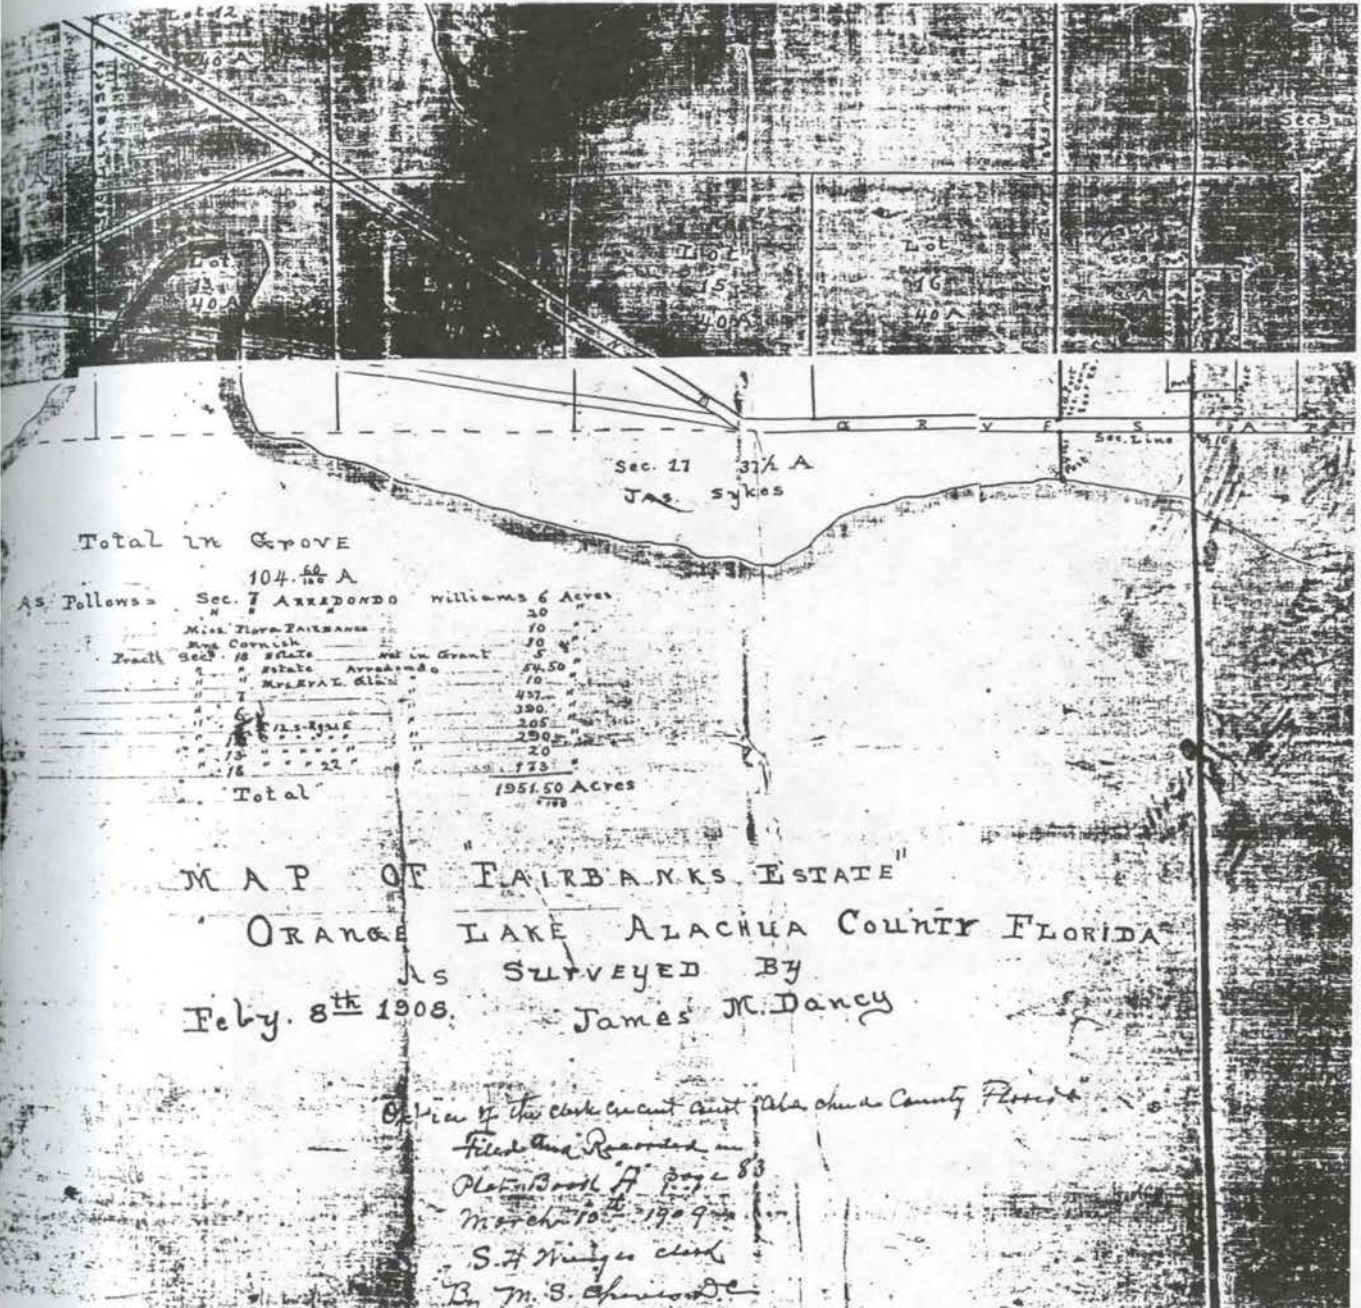 Lot 12
40 A
Sec 9
Lot
13
40 A
Lot
15
40 A
Lot
16
40 A
G R V E S A
Sec. Line
16
Sec. 17 37½ A
Jas Sykes
Total in Grove
104. 60/100 A
As Follows = Sec. 7 ARREDONDO Williams 6 Acres
" " " 20 "
Miss Flora FAIRBANKS 10 "
Mrs Cornish 10 "
Fract'l Sec. 18 Estate Not in Grant 5 "
" " Estate Arredondo 54.50 "
" " 10 "
" 7 " 437 "
" 390 "
" 12 S.R 205 "
" " " 290 "
" 13 " " " " 20 "
" 18 " " " 22 " " 173 "
Total 1951.50/100 Acres
MAP OF "FAIRBANKS ESTATE"
ORANGE LAKE ALACHUA COUNTY FLORIDA
As SURVEYED By
Feby. 8th 1908. James M. Dancy
Office of the clerk circuit court Alachua County Florida
Filed and Recorded in
Plat Book "A" page 83
March 10th 1909
S. H Wienges clerk
By M. S. DC